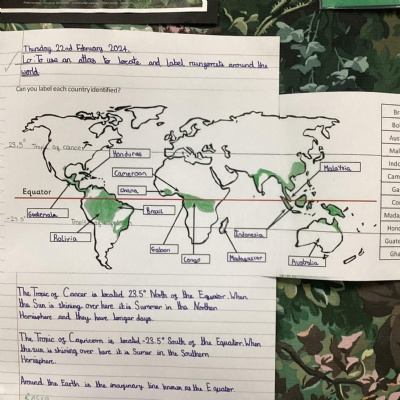 Thursday 22nd February 2024.
Lo To use an atlas to locate and label rainforests around the
world.
Can you label each country identified?
23.5° Tropic of cancer
Honduras
Malaysia
Cameroon
Ghana
Equator
Guatemala
Brazil
-23.5°
Bolivia
Indonesia
Gabon
Congo
Madagascar
Australia
Bra
Bol
Aus
Mal
Indo
Cam
Ga
Co
Mada
Hono
Guate
Gha
The Tropic of Cancer is located 23.5° North of the Equator. When
the Sun is shining over here it is Summer in the Northern
Hemisphere and they have longer days.
The Tropic of Capricorn is located -23.5° South of the Equator. When
the sun is shining over here it is Sumer in the Southern
Hemisphere.
Around the Earth is the imaginary line known as the Equator.